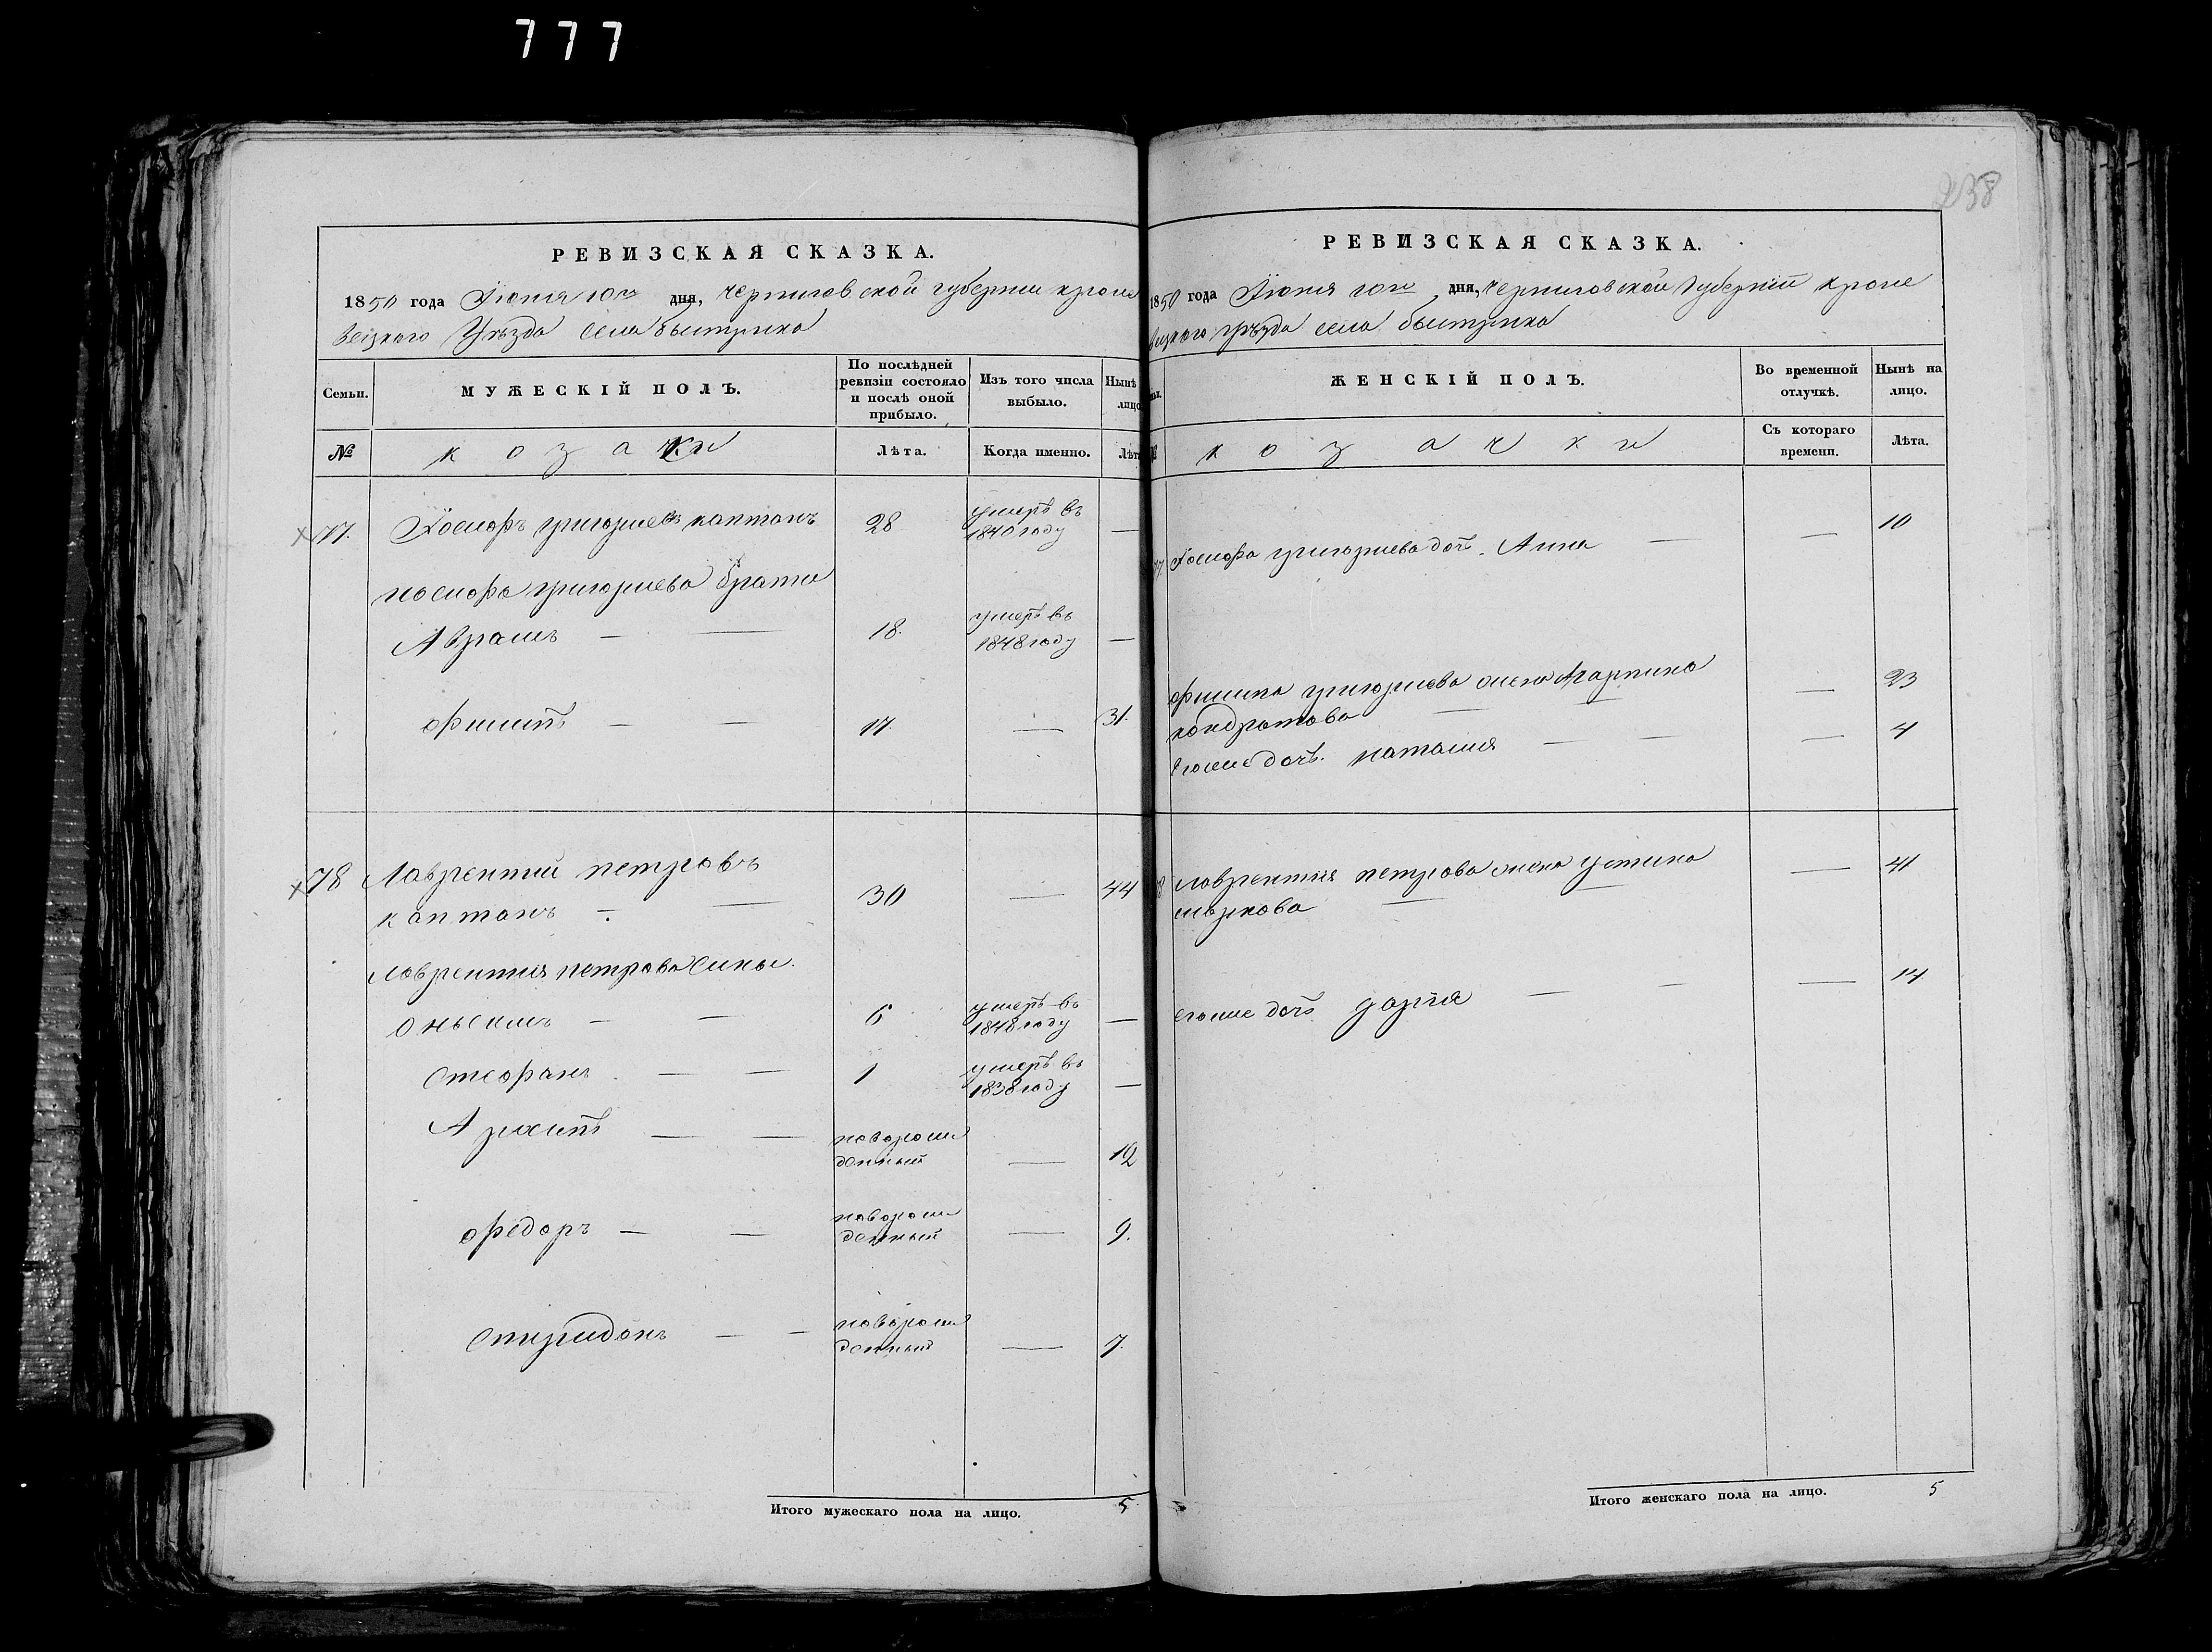 777
238
РЕВИЗСКАЯ СКАЗКА.
1850 года Іюня 10го дня, Черниговской губернии Кроле
вецкого Уѣзда села быстрика
Семьи. МУЖЕСКІЙ ПОЛЪ. По послѣдней ревизіи состояло и послѣ оной прибыло. Изъ того числа выбыло. Нынѣ лицо
№ козаки Лѣта. Когда именно. Лѣт
77. Іосифъ григориевъ каптанъ 28 умеръ въ 1840 году —
иосифа григориева брати
Аврамъ — — 18. умеръ въ 1848 году —
филипъ — — 17. — 31.
78 Лаврентий петровъ
каптанъ — — 30 — 44
лаврентия петрова сины.
онысимъ — — 6 умеръ въ 1848 году —
стефанъ — — 1 умеръ въ 1838 году —
Архипъ — — новорож
денный — 12
федоръ — — новорож
денный — 9.
спиридонъ — — новорож
денный — 7.
Итого мужескаго пола на лицо. 5
РЕВИЗСКАЯ СКАЗКА.
1850 года Іюня 10го дня, Черниговской губерніи Кроле
вецкого уѣзда села быстрика
ЖЕНСКІЙ ПОЛЪ. Во временной отлучкѣ. Нынѣ на лицо.
козачки Съ котораго времени. Лѣта.
77 Іосифа григориева доч. Анна — — 10
филипа григориева жена Агарпина
кондратова — — — 23
его же доч. наталия — — — 4
8 лаврентия петрова жена Устина
маркова — — — 41
его же доч. дарія — — — 14
Итого женскаго пола на лицо. 5